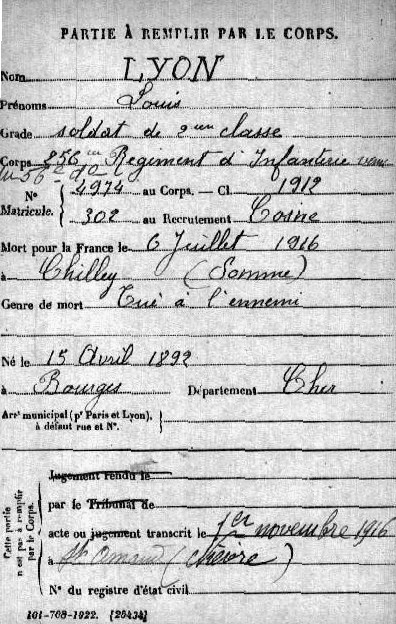 PARTIE À REMPLIR PAR LE CORPS.
Nom LYON
Prénoms Louis
Grade soldat de 2eme classe
Corps 256e Régiment d'Infanterie venu
du 56e do
N° Matricule. 4974 au Corps. — Cl. 1912
302 au Recrutement Cosne
Mort pour la France le 6 Juillet 1916
à Chilley (Somme)
Genre de mort Tué à l'ennemi
Né le 15 Avril 1892
à Bourges Département Cher
Arrt municipal (pr Paris et Lyon), à défaut rue et N°.
Cette partie n'est pas à remplir par le Corps.
Jugement rendu le
par le Tribunal de
acte ou jugement transcrit le 1er novembre 1916
à St Amand (Nièvre)
N° du registre d'état civil
101-708-1922. [26434]